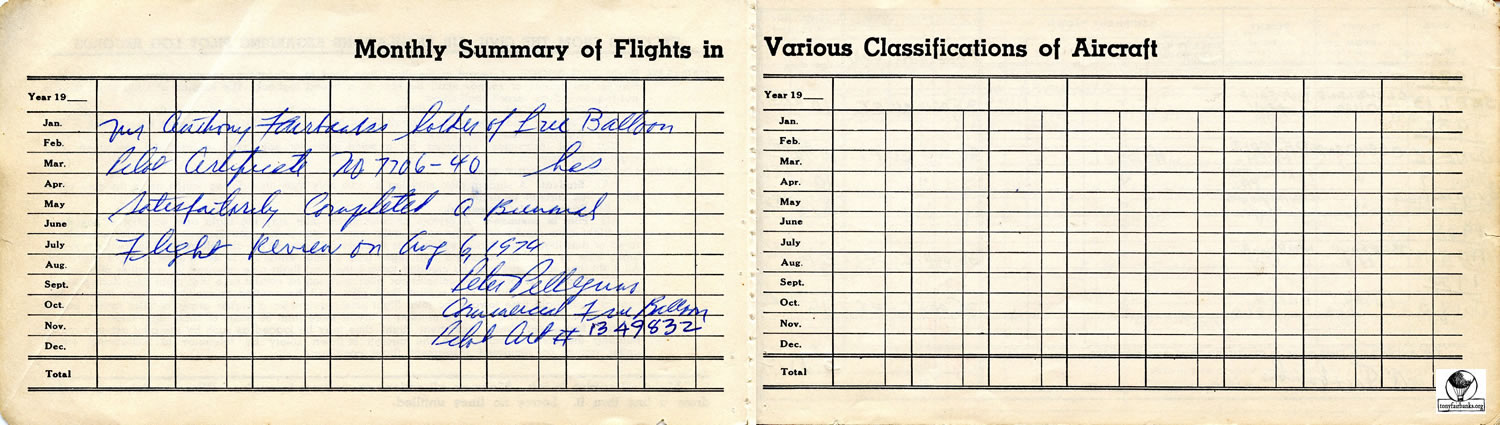 Monthly Summary of Flights in Various Classifications of Aircraft
Year 19
Jan.
Feb.
Mar.
Apr.
May
June
July
Aug.
Sept.
Oct.
Nov.
Dec.
Total
Mr Anthony Fairbanks holder of Free Balloon
Pilot Certificate No 7706-40 has
Satisfactorily Completed a Biennial
Flight Review on Aug 6, 1974
Peter
Commercial Free Balloon
Pilot Cert # 1349832
Year 19
Jan.
Feb.
Mar.
Apr.
May
June
July
Aug.
Sept.
Oct.
Nov.
Dec.
Total
tonyfairbanks.org